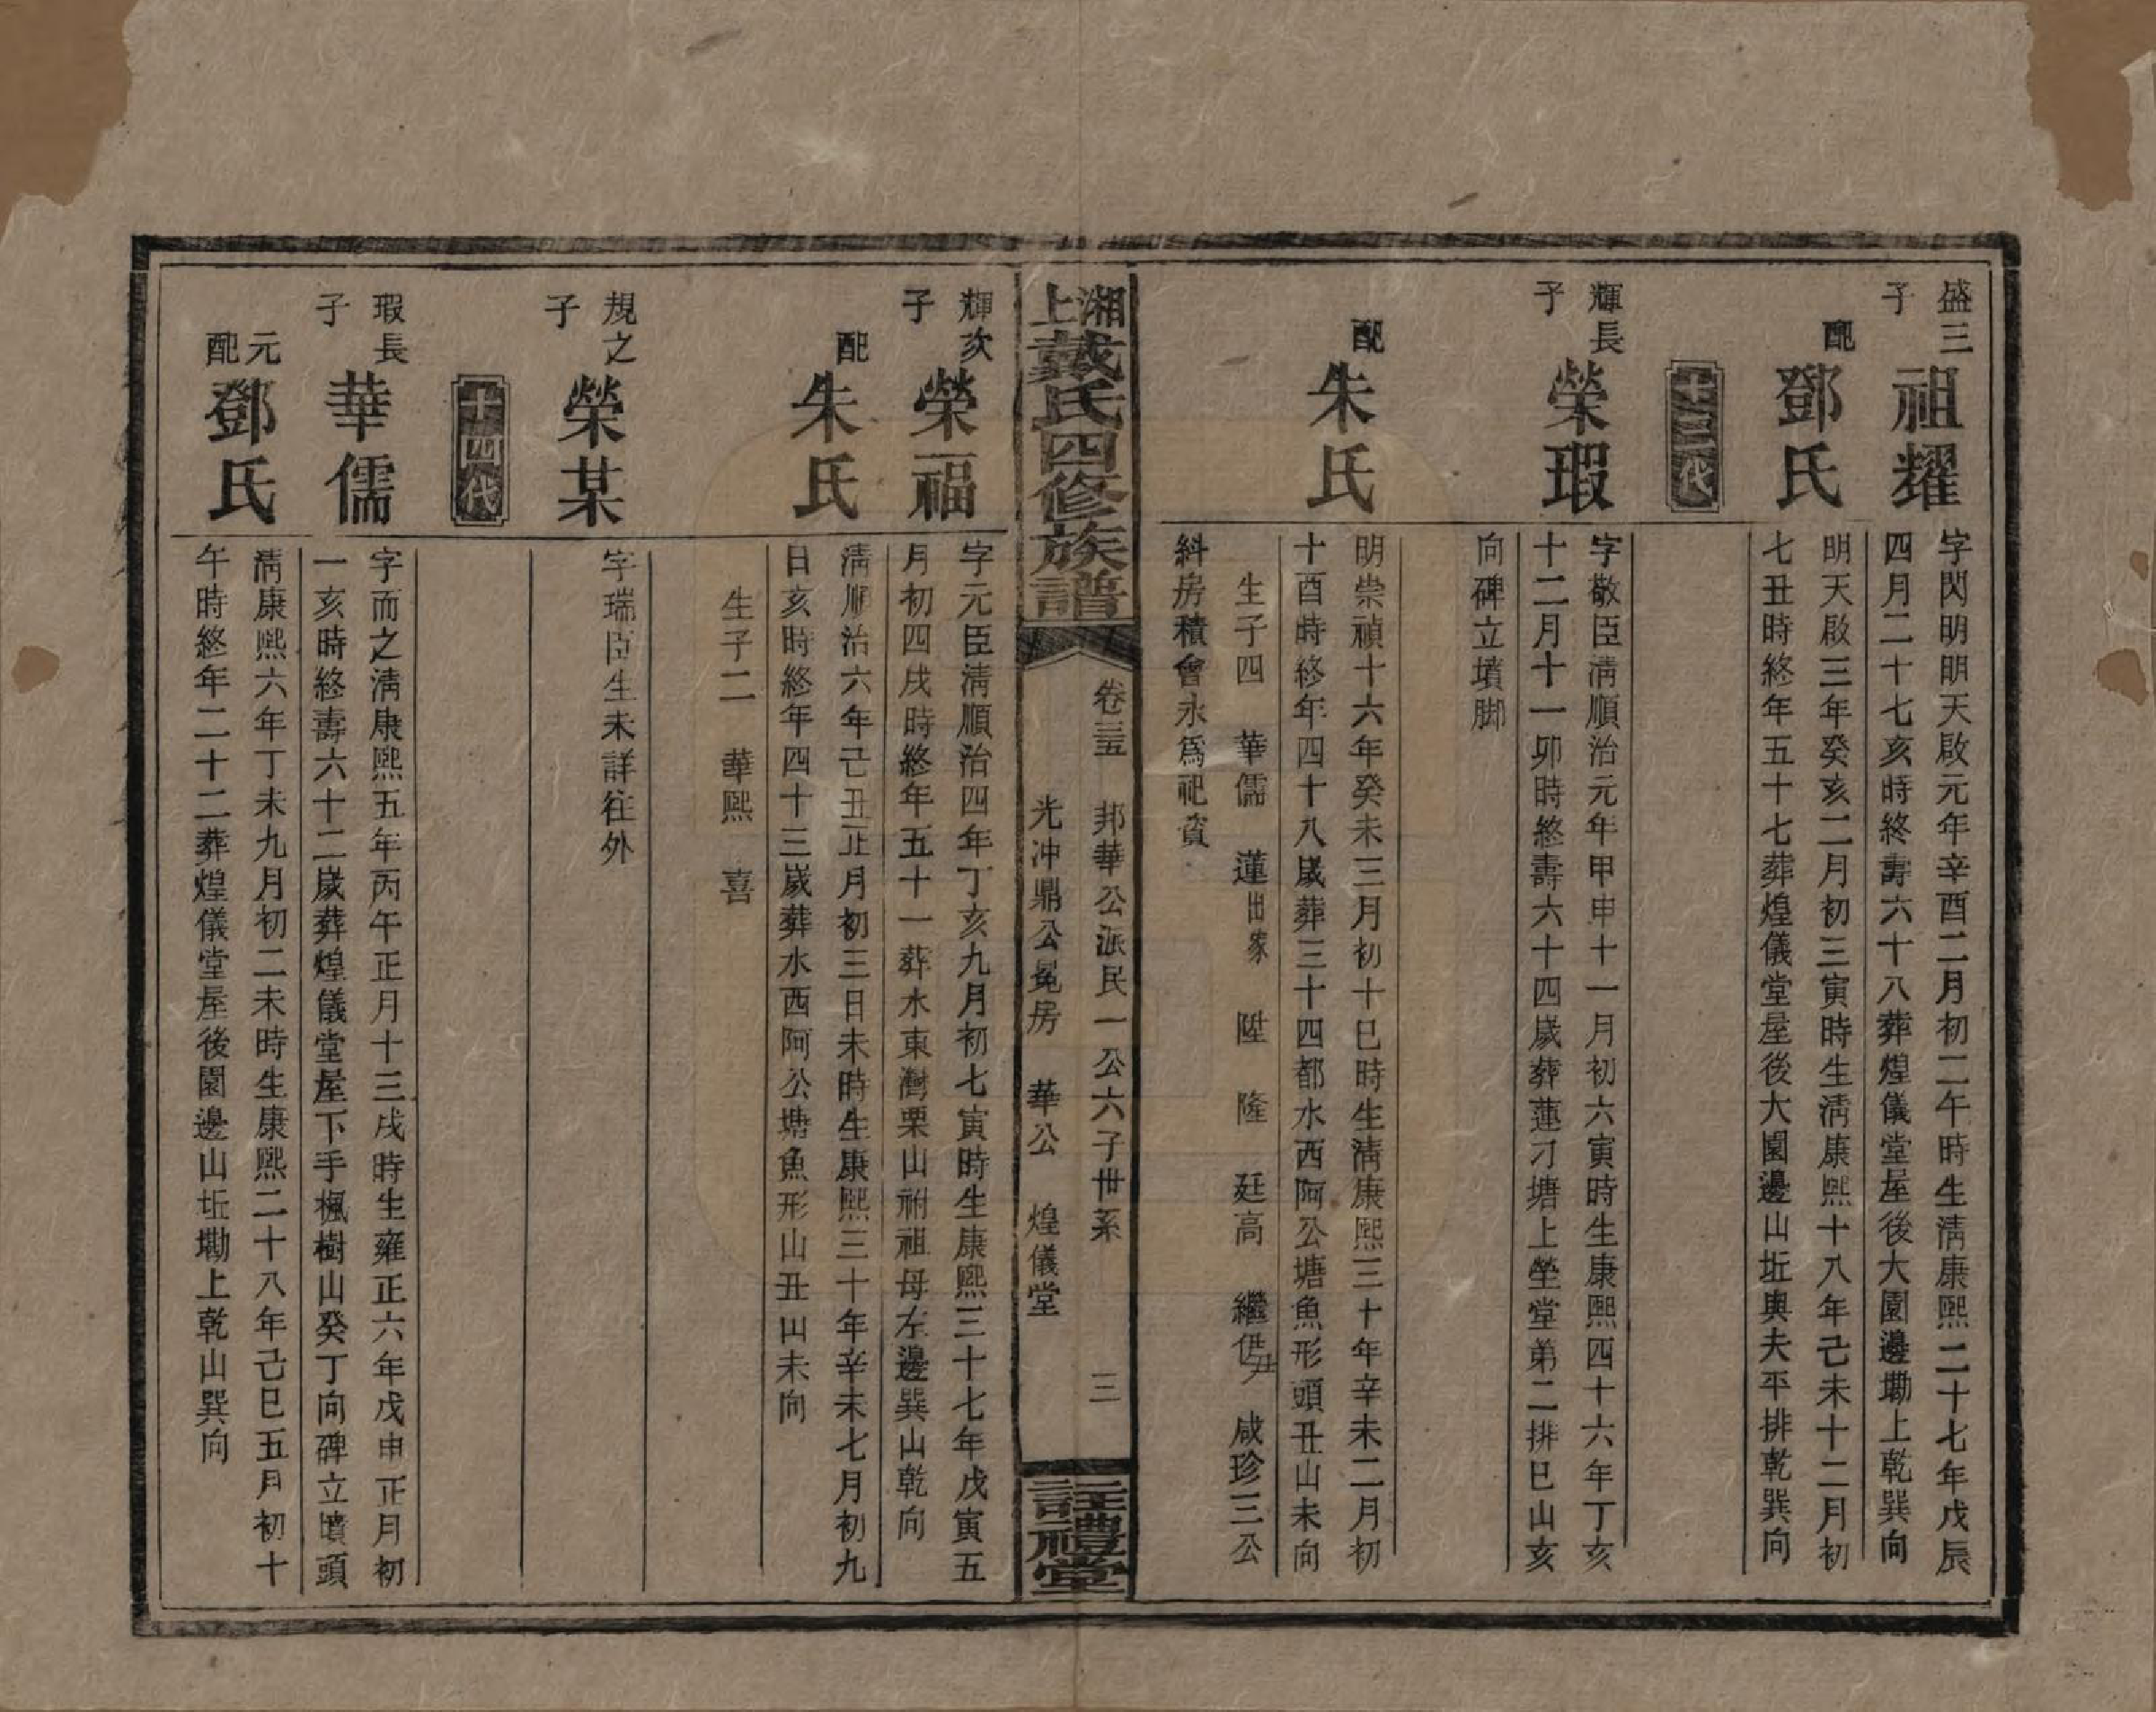 盛三子
祖耀
字閃明明天啟元年辛酉二月初二午時生淸康熙二十七年戊辰
四月二十七亥時終壽六十八葬煌儀堂屋後大園邊墈上乾巽向
配
鄧氏
明天啟三年癸亥二月初三寅時生淸康熙十八年己未十二月初
七丑時終年五十七葬煌儀堂屋後大園邊山坵與夫平排乾巽向
十三代
輝長子
榮瑕
字敬臣淸順治元年甲申十一月初六寅時生康熙四十六年丁亥
十二月十一卯時終壽六十四歲葬蓮刁塘上塋堂第二排巳山亥
向碑立墳脚
配
朱氏
明崇禎十六年癸未三月初十巳時生淸康熙三十年辛未二月初
十酉時終年四十八歲葬三十四都水西阿公塘魚形頭丑山未向
生子四 華儒 蓮出家 陞 隆 廷高 繼 咸珍三公
糾房積會永爲祀資
湘上戴氏四修族譜
卷三五 邦華公派民一公六子世系 三
光冲鼎公冕房 華公 煌儀堂
註禮堂
輝次子
榮福
字元臣淸順治四年丁亥九月初七寅時生康熙三十七年戊寅五
月初四戌時終年五十一葬水東灣栗山祔祖母左邊巽山乾向
配
朱氏
淸順治六年己丑正月初三日未時生康熙三十年辛未七月初九
日亥時終年四十三歲葬水西阿公塘魚形山丑山未向
生子二 華熙 喜
規之子
榮某
字瑞臣生未詳往外
十四代
瑕長子
華儒
字而之淸康熙五年丙午正月十三戌時生雍正六年戊申正月初
一亥時終壽六十二歲葬煌儀堂屋下手楓樹山癸丁向碑立墳頭
元配
鄧氏
淸康熙六年丁未九月初二未時生康熙二十八年己巳五月初十
午時終年二十二葬煌儀堂屋後園邊山坵墈上乾山巽向